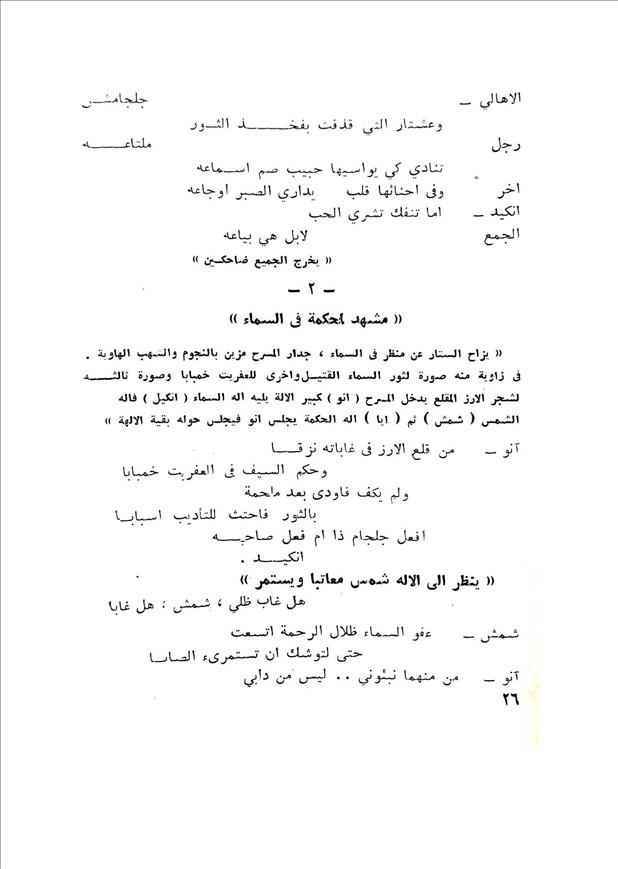 الاهالي — جلجامشـــن
وعشتار التي قذفت بفخــــــذ الثــور
رجل ملتاعـــــه
تنادي كي يواسيها حبيب صم اســماعه
اخر وفى احنائها قلب يداري الصبر اوجاعه
انكيد — اما تنفك تشري الحب
الجمع لابل هي بياعه
« يخرج الجميع ضاحكين »
— ٢ —
« مشهد المحكمة فى السماء »
« يزاح الستار عن منظر فى السماء ، جدار المسرح مزين بالنجوم والشهب الهاوية .
فى زاوية منه صورة لثور السماء القتيل واخرى للعفريت خمبابا وصورة ثالثـــه
لشجر الارز المقلع يدخل المسرح ( انو ) كبير الالة يليه اله السماء ( انكيل ) فاله
الشمس ( شمش ) ثم ( ايا ) اله الحكمة يجلس انو فيجلس حوله بقية الالهة »
آنو — من قلع الارز فى غاباته نزقـــا
وحكم السيف فى العفريت خمبابا
ولم يكف فاودى بعد ملحمة
بالثور فاحتث للتأديب اسبابـا
افعل جلجام ذا ام فعل صاحبـــه
انكيــــد .
« ينظر الى الاله شمس معاتبا ويستمر »
هل غاب ظلي ، شمش ؛ هل غابا
شمش — عفو السماء ظلال الرحمة اتسعت
حتى لتوشك ان تستمرىء الصابـا
آنو — من منهما نبئوني .. ليس من دابي
٢٦